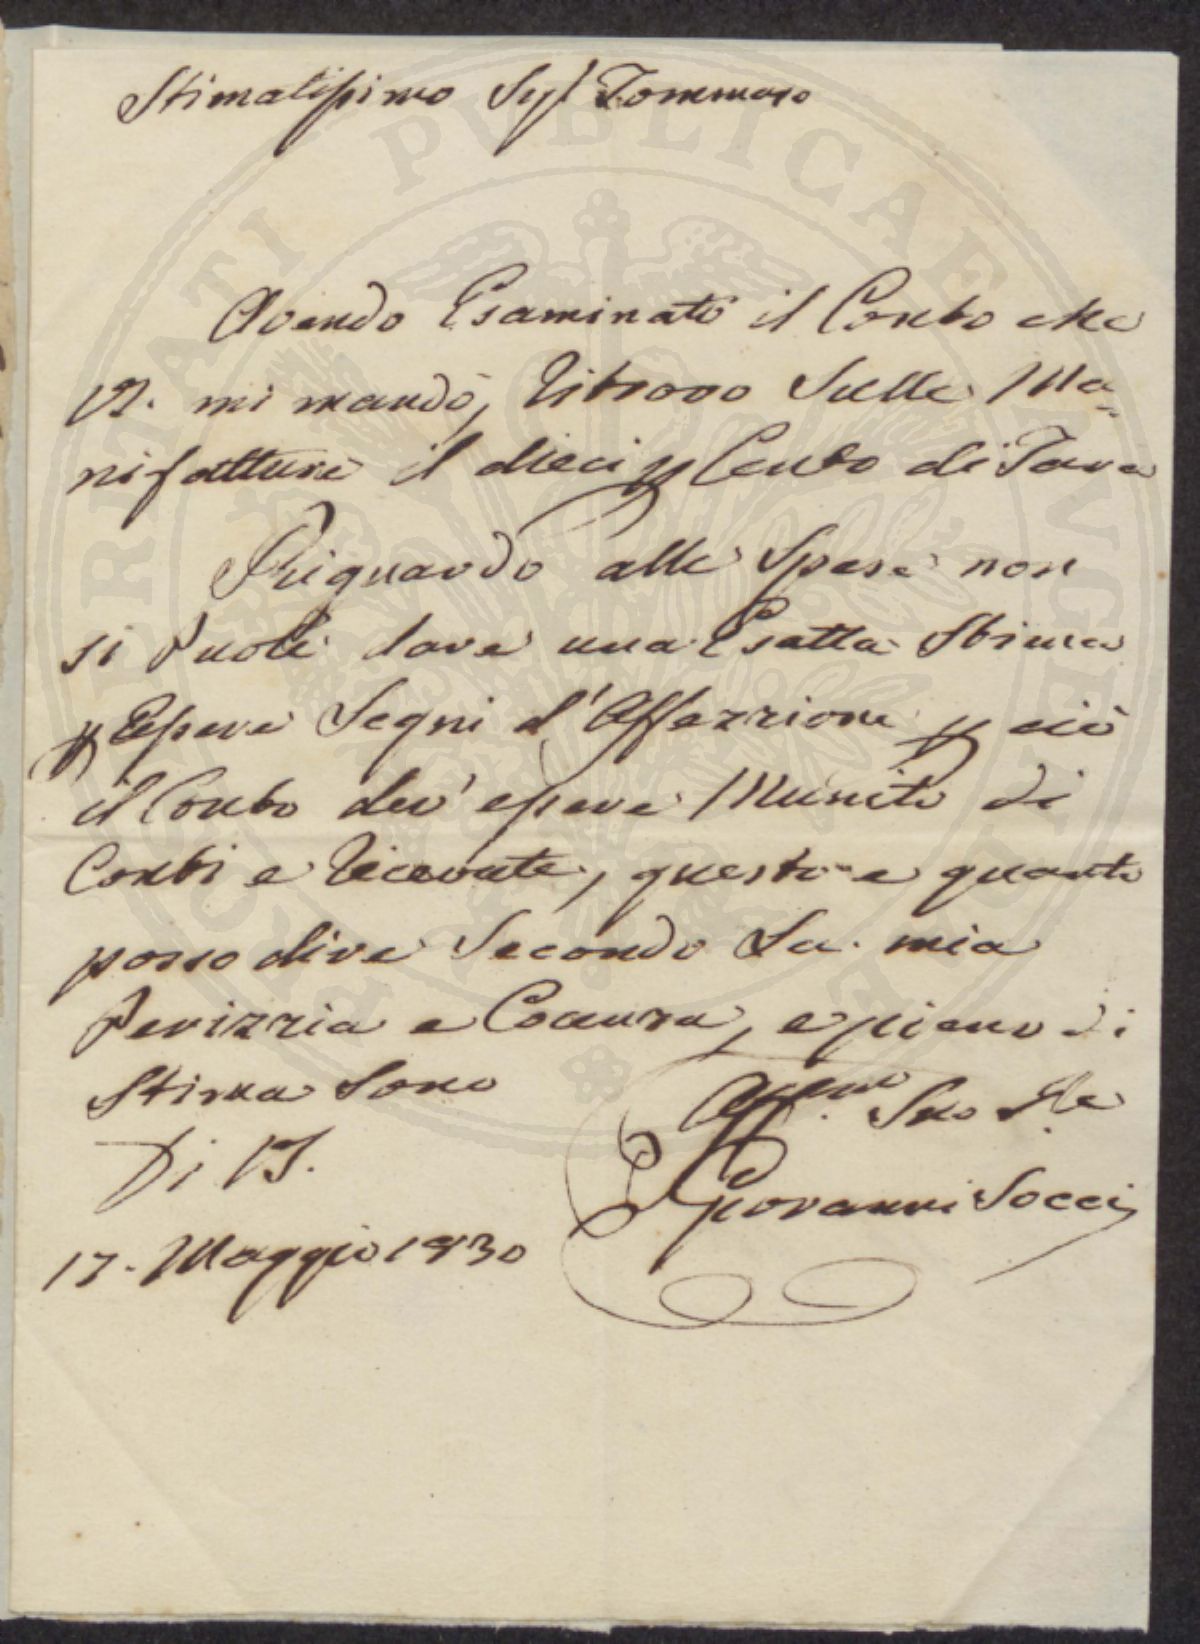 Stimatissimo Sigr Tommaso
Avendo Esaminato il Conto che
VS. mi mandò, Ritrovo Sulle Ma=
nifatture il dieci p Cento di Tara
Riguardo alle Spese non
si Puole dare una Esatta Stima
p Essere Segni d'Affezzione p ciò
il Conto dev' essere Munito di
Conti e Ricevute, questo e quanto
posso dire Secondo La mia
Perizzia e Cocenza, e pieno di
Stima Sono
Di VS.
Affmo Suo Sre
Giovanni Socci
17. Maggio 1830
PROSPERITATI PVBLICAE AVGENDAE